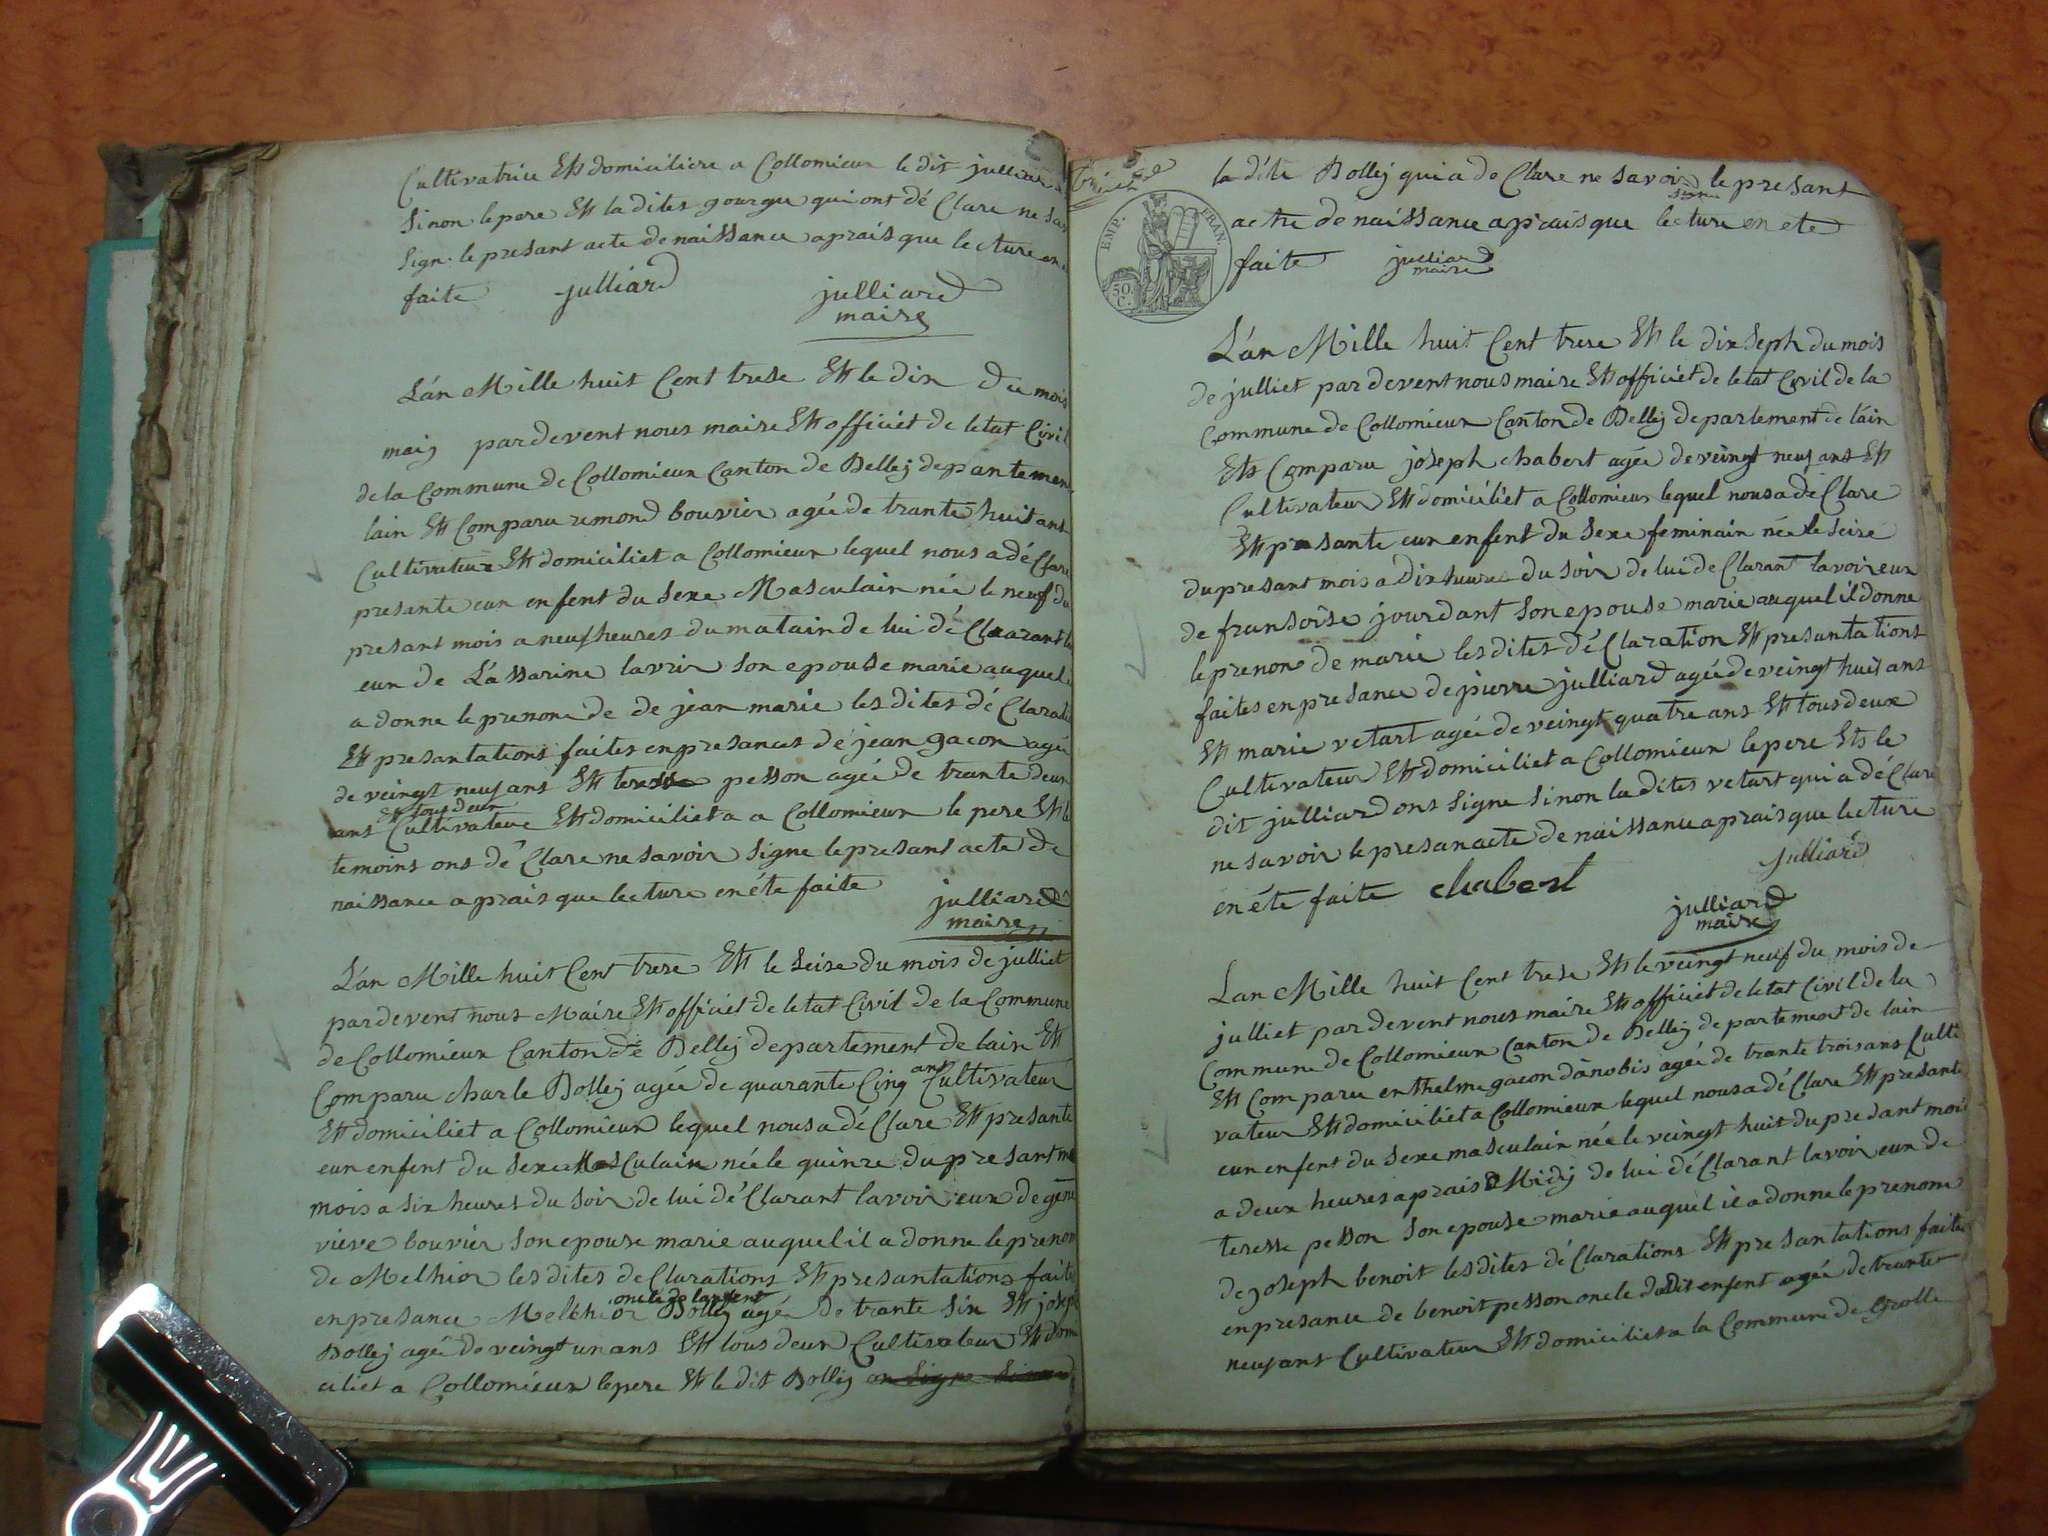 Cultivatrice Ett domiciliere a Collomieux le dit julliard
Sinon le pere Ett la dites gourgu qui ont dé Clare ne sav
Signe le presant acte de naissance aprais que lecture en e
faite julliard julliard
maire
L'án Mille huit Cent trese Ett le dix du mois
maij pardevent nous maire Ett officiét de letat Civil
de la Commune de Collomieux Canton de Bellej departement
lain Ett Comparu remond bouvier agée de trante huit ans
Cultivateur Ett domiciliet a Collomieux lequel nous a dé Clare
presante eun enfent du Sexe Masculain née le neuf du
presant mois a neuf heures du matain de lui dé Clarant la
eun de Lássarine lavrir son epouse marie auquel
a donne le prenom de de jean marie les dites dé Clarati
Ett presantations faites en presances de jean gacon agée
de veingt neuf ans Ett teresse pesson agée de trante deux
Ett tous deux
ans Cultivateur Ett domiciliet a a Collomieux le pere Ett le
temoins ons dé Clare ne savoir Signe le presans acte de
naissance aprais que lecture en éte faite julliard
maire
L'án Mille huit Cent trese Ett le Seise du mois de julliet
pardevent nous Maire Ett officiet de letat Civil de la Commune
de Collomieux Canton de Bellej departement de lain Ett
Comparu charle Bollej agée de quarante Cinq ans Cultivateur
Ett domiciliet a Collomieux lequel nous a dé Clare Ett presante
eun enfent du Sexe Masculain née le quinze du presant m
mois a six heures du soir de lui dé Clarant lavoir eux de gene
vieve bouvier Son epouse marie auquel il a donne le prenom
de Melhior les dites de Clarations Ett presantations faite
oncle de lanfent
en presance Melkhior Bollej agée de trante Six Ett joseph
Bollej agé de veingt un ans Ett tous deux Cultivateur Ett domi
ciliet a Collomieux le pere Ett le dit Bollej on Signe Sinon
la dite Bollej qui a de Clare ne savoir le presant
signe
acte de naissance aprais que lecture en ete
EMP. FRAN.
50 C.
faite julliard
maire
L'án Mille huit Cent trese Ett le dix Seph du mois
de julliet pardevent nous maire Ett officiét de letat Civil de la
Commune de Collomieux Canton de Bellej departement de lain
Ett Comparu joseph chabert agée de veingt neuf ans Ett
Cultivateur Ett domiciliet a Collomieux lequel nous a dé Clare
Ett presante eun enfent du Sexe feminain née le seise
du presant mois a dix heures du soir de lui de Clarant lavoir eux
de fransoise jourdant Son epouse marie auquel il donne
le prenom de marie les dites dé Claration Ett presantations
faites en presance de pierre julliard agée de veingt huit ans
Ett marie vetart agée de veingt quatre ans Ett tous deux
Cultivateur Ett domiciliet a Collomieux le pere Ett le
dit julliard ons Signe Sinon la dites vetart qui a dé Clare
ne savoir le presan acte de naissance aprais que lecture
en éte faite chabert julliard
julliard
maire
Lan Mille huit Cent trese Ett le veingt neuf du mois de
julliet pardevent nous maire Ett officiet de letat Civil de la
Commune de Collomieux Canton de Bellej departement de lain
Ett Comparu enthelme gacon dánobis agée de trante trois ans Culti
vateur Ett domiciliet a Collomieux lequel nous a dé Clare Ett presante
eun enfent du Sexe masculain née le veingt huit du presant mois
a deux heures aprais Midij de lui dé Clarant lavoir eun de
teresse pesson Son epouse marie auquel il a donne le prenom
de joseph benoit les dites dé Clarations Ett presantations faites
en presance de benoit pesson oncle dudit enfent agée de trante
neuf ans Cultivateur Ett domiciliet a la Commune de Crolle